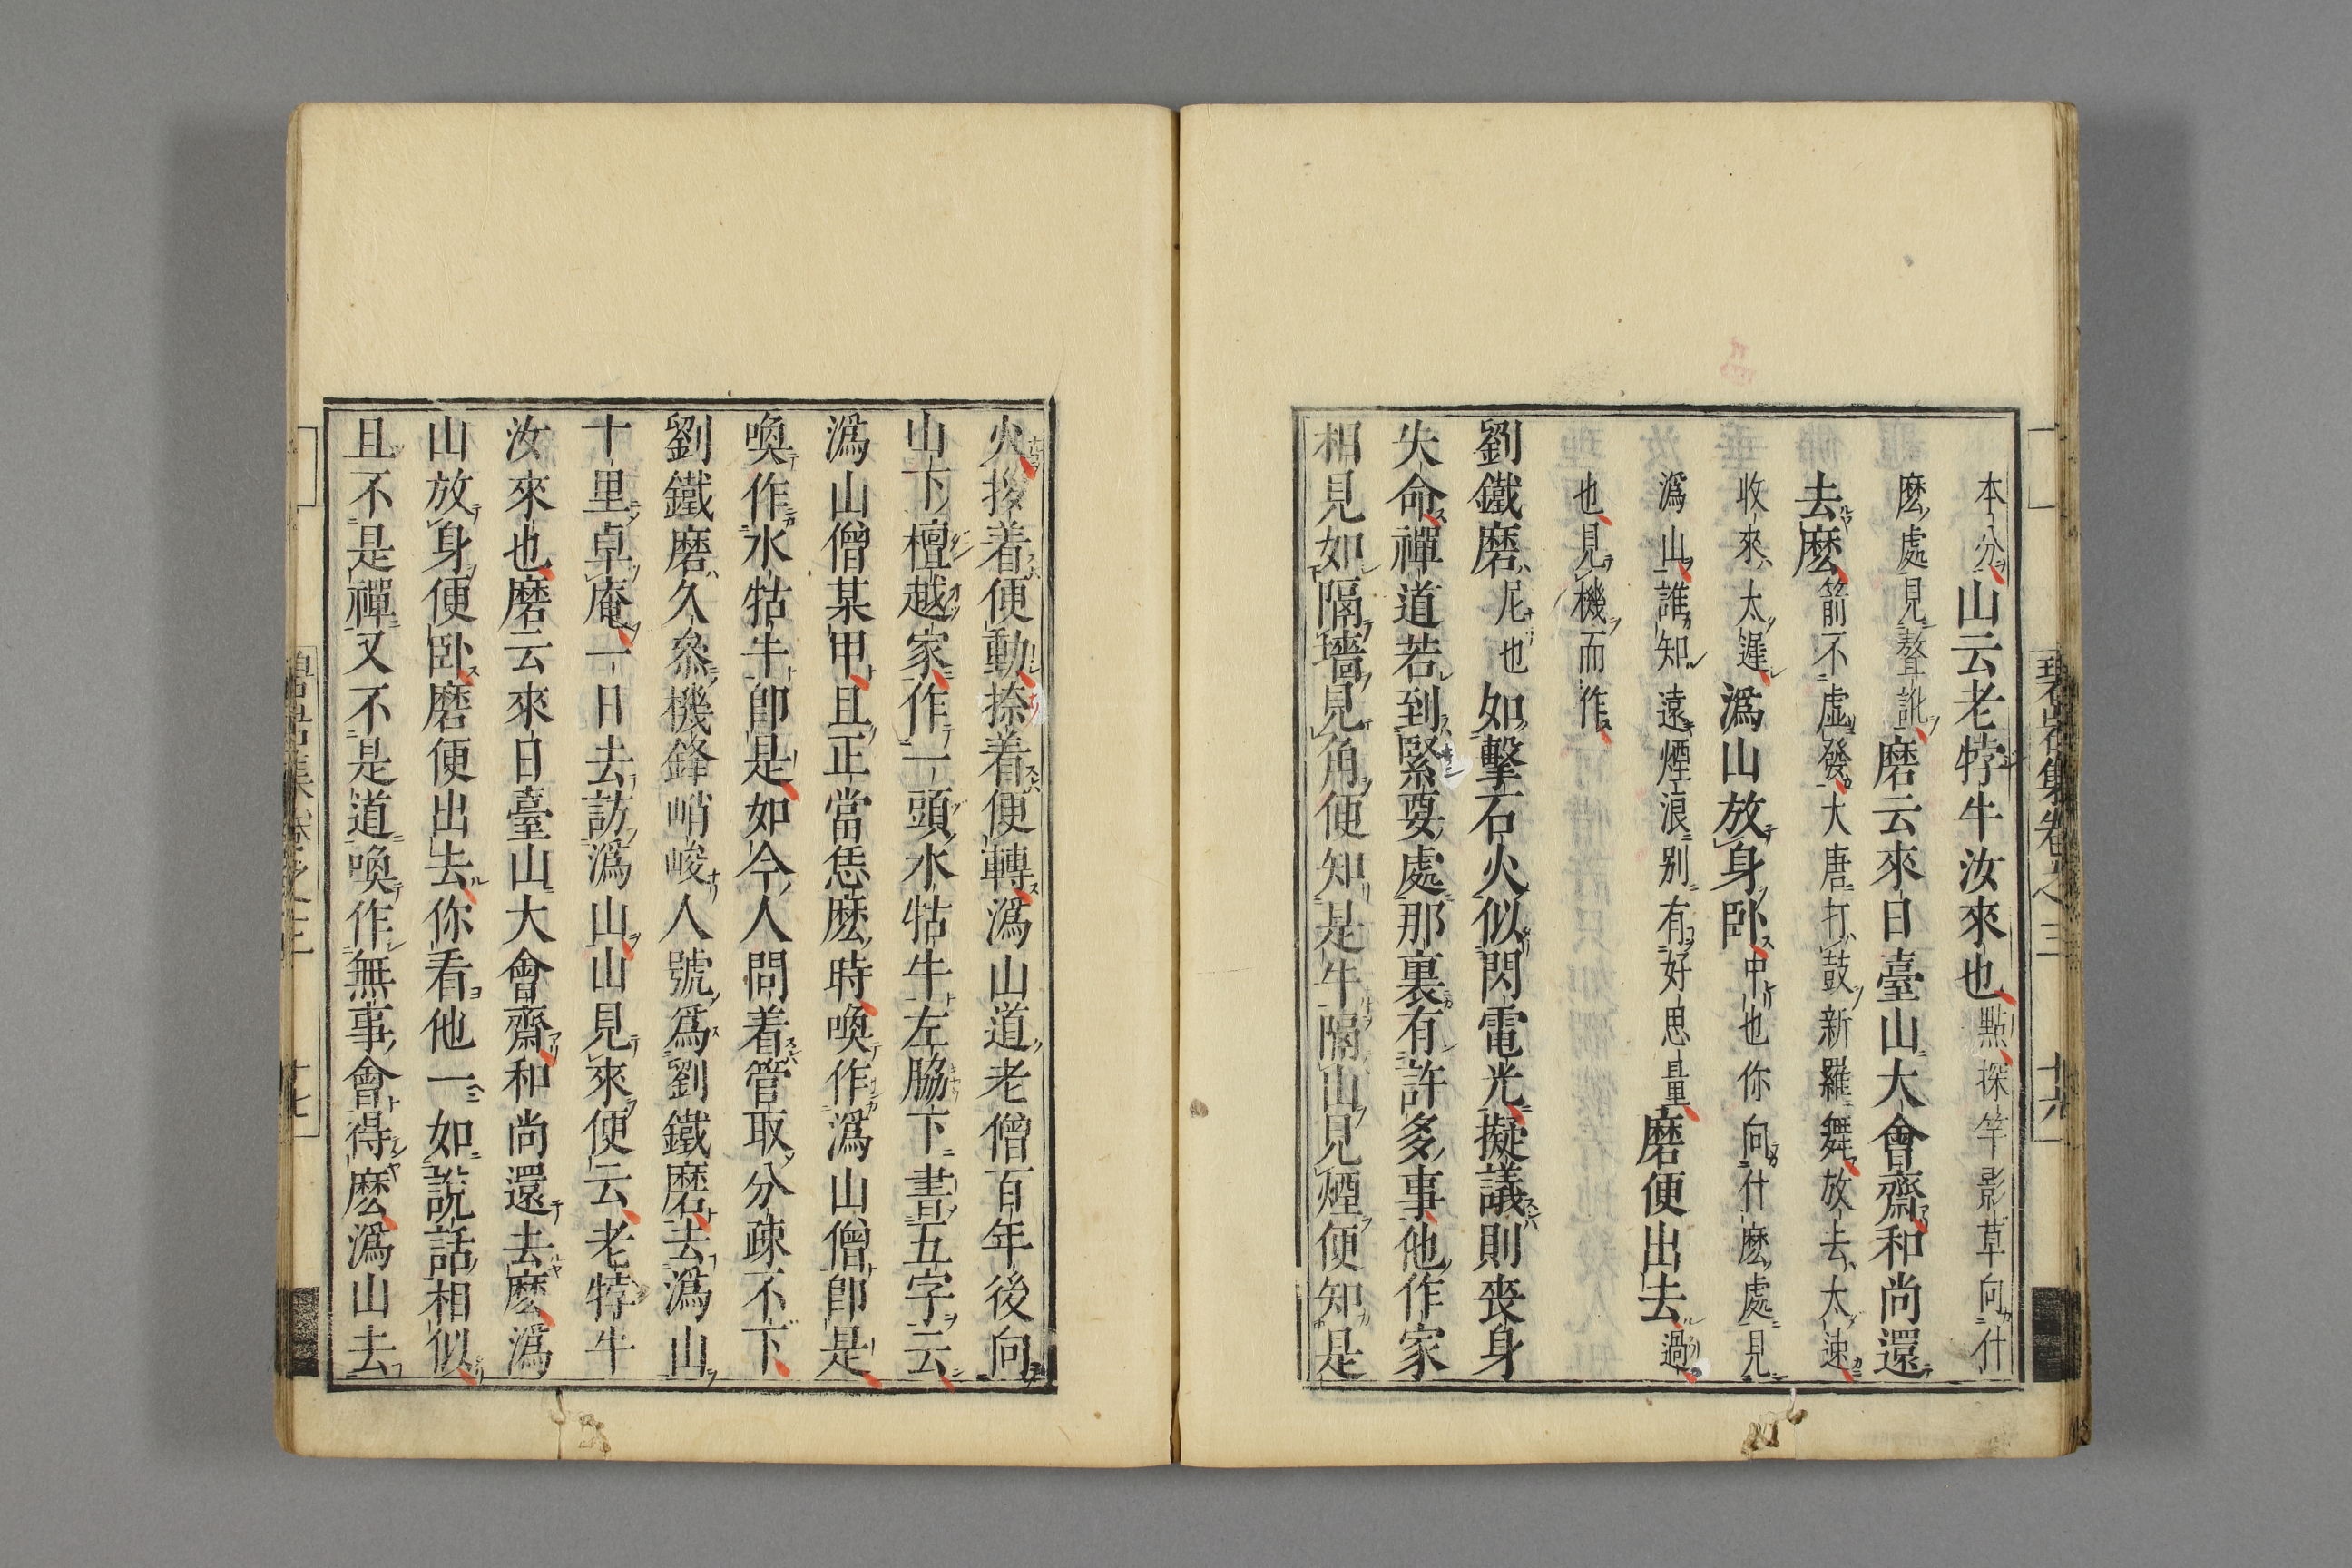 本分山云老牸牛汝來也點探竿影草向什
麽處見聱訛磨云來日臺山大會齋和尚還
去麽箭不虛發大唐打鼓新羅舞放去太速
收來太遲溈山放身臥中也你向什麽處見
溈山誰知遠煙浪别有好思量磨便出去過
也見機而作
劉鐵磨尼也如擊石火似閃電光擬議則喪身
失命禪道若到緊要處那裏有許多事他作家
相見如隔墻見角便知是牛隔山見煙便知是
碧岩集卷之三 十六
火拶着便動捺着便轉溈山道老僧百年後向
山下檀越家作一頭水牯牛左脇下書五字云
溈山僧某甲且正當恁麽時喚作溈山僧卽是
喚作水牯牛卽是如今人問着管取分疎不下
劉鐵磨久叅機鋒峭峻人號爲劉鐵磨去溈山
十里卓庵一日去訪溈山山見來便云老牸牛
汝來也磨云來日臺山大會齋和尚還去麽溈
山放身便臥磨便出去你看他一如説話相似
且不是禪又不是道喚作無事會得麽溈山去